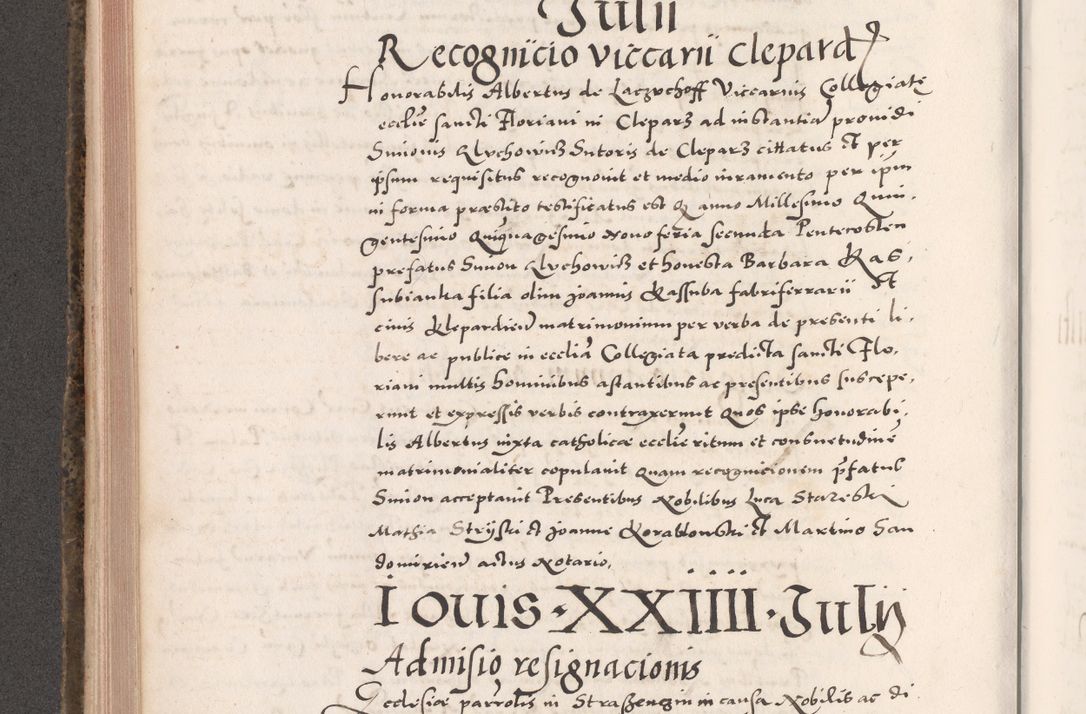 Julii
Recognicio viccarii Clepard
Honorabilis Albertus de Laczuchoff Viccarius Collegiate
ecclie sancti Floriani in Cleparz ad instantia providi
Simonis Lychowicz Sutoris de Cleparz cittatus et per
ipsum requisitus recognovit et medio iuramento per ipm
in forma præstito testificatus est q anno Millesimo Quin,
gentesimo quinquagesimo Nono feria secunda Pentecosten
prefatus Simon Lychowicz et honesta Barbara Kas,
subianka filia olim Joannis Kassuba fabriferrarii et
civis Klepardien matrimonium per verba de presenti li,
bere ac publice in ecclia Collegiata predicta sancti Flo,
riani multis hominibus astantibus ac presentibus suscepe,
runt et expressis verbis contraxerunt quos ipse honorabi,
lis Albertus iuxta catholicæ ecclie ritum et consuetudine
matrimonialiter copulavit quam recognicionem pfatus
Simon acceptavit Presentibus Nobilibus Luca Starzeski
Mathia Stryski et Joanne Korabkowski et Martino San
domirien actus Notario,
Iovis · XXIIII · Julij
Admisio resignacionis
Ecclesiæ parrolis in Straszenczin in causa Nobilis ac di